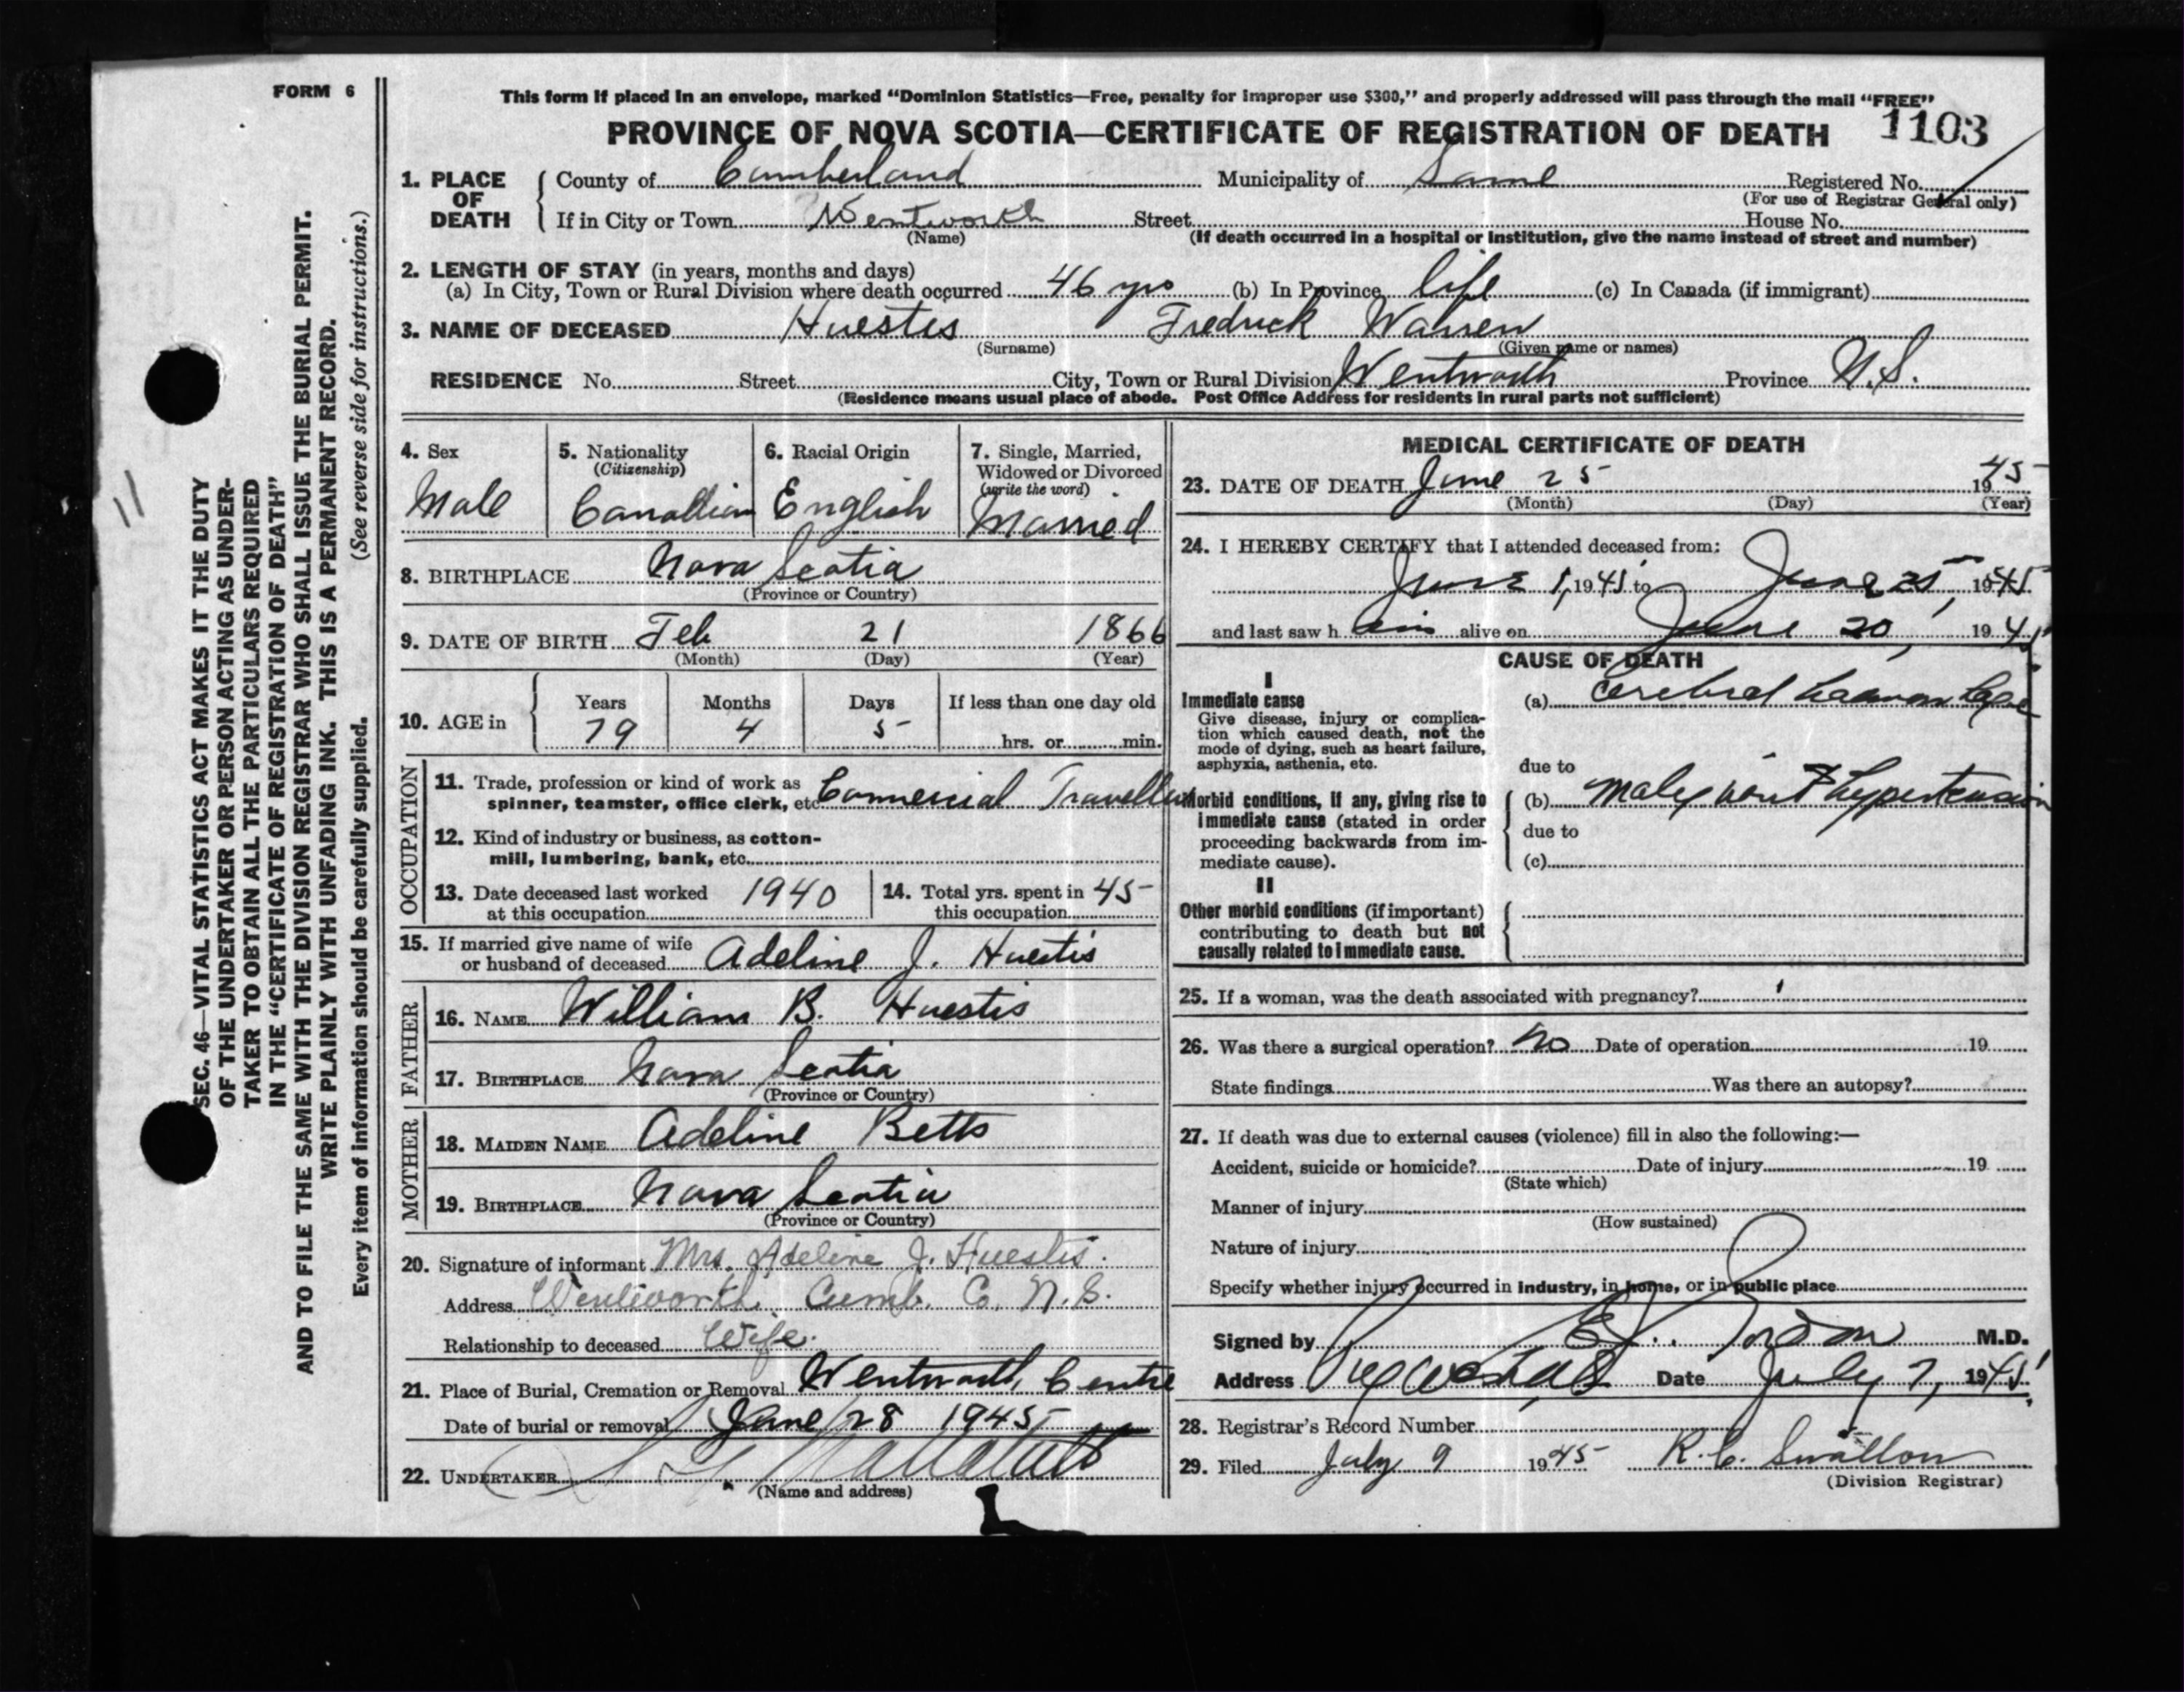 FORM 6
This form if placed in an envelope, marked "Dominion Statistics—Free, penalty for improper use $300," and properly addressed will pass through the mail "FREE"
PROVINCE OF NOVA SCOTIA—CERTIFICATE OF REGISTRATION OF DEATH 1103
1. PLACE OF DEATH County of Cumberland Municipality of Same Registered No.
(For use of Registrar General only)
If in City or Town Wentworth Street House No.
(Name) (If death occurred in a hospital or institution, give the name instead of street and number)
2. LENGTH OF STAY (in years, months and days)
(a) In City, Town or Rural Division where death occurred 46 yrs (b) In Province life (c) In Canada (if immigrant)
3. NAME OF DECEASED Huestis Fredrick Warren
(Surname) (Given name or names)
RESIDENCE No. Street City, Town or Rural Division Wentworth Province N.S.
(Residence means usual place of abode. Post Office Address for residents in rural parts not sufficient)
4. Sex Male
5. Nationality (Citizenship) Canadian
6. Racial Origin English
7. Single, Married, Widowed or Divorced (write the word) Married
8. BIRTHPLACE Nova Scotia
(Province or Country)
9. DATE OF BIRTH Feb 21 1866
(Month) (Day) (Year)
10. AGE in Years 79 Months 4 Days 5 If less than one day old hrs. or min.
OCCUPATION
11. Trade, profession or kind of work as
spinner, teamster, office clerk, etc. Commercial Traveller
12. Kind of industry or business, as cotton-
mill, lumbering, bank, etc.
13. Date deceased last worked
at this occupation 1940
14. Total yrs. spent in
this occupation 45
15. If married give name of wife
or husband of deceased Adeline J. Huestis
FATHER
16. NAME William B. Huestis
17. BIRTHPLACE Nova Scotia
(Province or Country)
MOTHER
18. MAIDEN NAME Adeline Betts
19. BIRTHPLACE Nova Scotia
(Province or Country)
20. Signature of informant Mrs. Adeline J. Huestis.
Address Wentworth, Cumb. Co. N.S.
Relationship to deceased Wife.
21. Place of Burial, Cremation or Removal Wentworth Centre
Date of burial or removal June 28 1945
22. UNDERTAKER
(Name and address)
MEDICAL CERTIFICATE OF DEATH
23. DATE OF DEATH June 25 1945
(Month) (Day) (Year)
24. I HEREBY CERTIFY that I attended deceased from:
June 1, 1945 to June 25, 1945
and last saw him alive on June 20, 1945
CAUSE OF DEATH
I
Immediate cause
Give disease, injury or complica-
tion which caused death, not the
mode of dying, such as heart failure,
asphyxia, asthenia, etc.
(a) Cerebral haemorrhage
due to
Morbid conditions, if any, giving rise to
immediate cause (stated in order
proceeding backwards from im-
mediate cause).
(b) hypertension
due to
(c)
II
Other morbid conditions (if important)
contributing to death but not
causally related to immediate cause.
25. If a woman, was the death associated with pregnancy?
26. Was there a surgical operation? No Date of operation 19
State findings Was there an autopsy?
27. If death was due to external causes (violence) fill in also the following:—
Accident, suicide or homicide? Date of injury 19
(State which)
Manner of injury
(How sustained)
Nature of injury
Specify whether injury occurred in industry, in home, or in public place
Signed by M.D.
Address Date July 7, 1945
28. Registrar's Record Number
29. Filed July 9 1945 R. C. Swallow
(Division Registrar)
SEC. 46—VITAL STATISTICS ACT MAKES IT THE DUTY
OF THE UNDERTAKER OR PERSON ACTING AS UNDER-
TAKER TO OBTAIN ALL THE PARTICULARS REQUIRED
IN THE "CERTIFICATE OF REGISTRATION OF DEATH"
AND TO FILE THE SAME WITH THE DIVISION REGISTRAR WHO SHALL ISSUE THE BURIAL PERMIT.
WRITE PLAINLY WITH UNFADING INK. THIS IS A PERMANENT RECORD.
Every item of information should be carefully supplied. (See reverse side for instructions.)
11